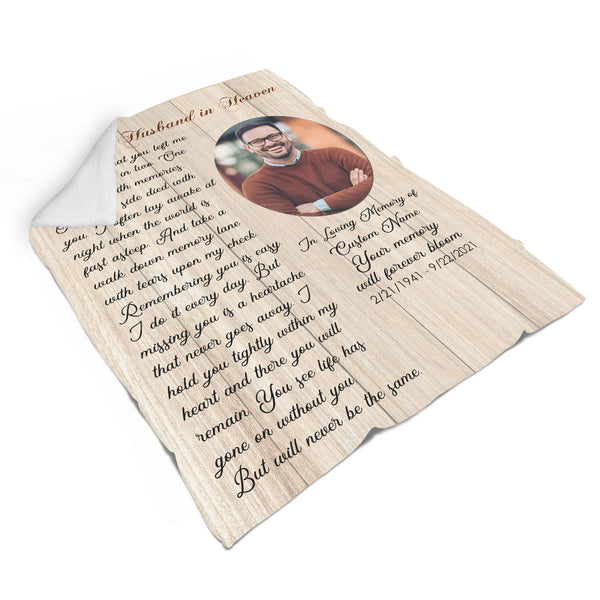 Husband in Heaven
hat you left me
in two. One
th memories
side died with
you. I often lay awake at
night when the world is
fast asleep. And take a
walk down memory lane
with tears upon my cheek.
Remembering you is easy
I do it every day. But
missing you is a heartache
that never goes away. I
hold you tightly within my
heart and there you will
remain. You see life has
gone on without you
But will never be the same.
In Loving Memory of
Custom Name
Your memory
will forever bloom
2/21/1941 - 9/22/2021